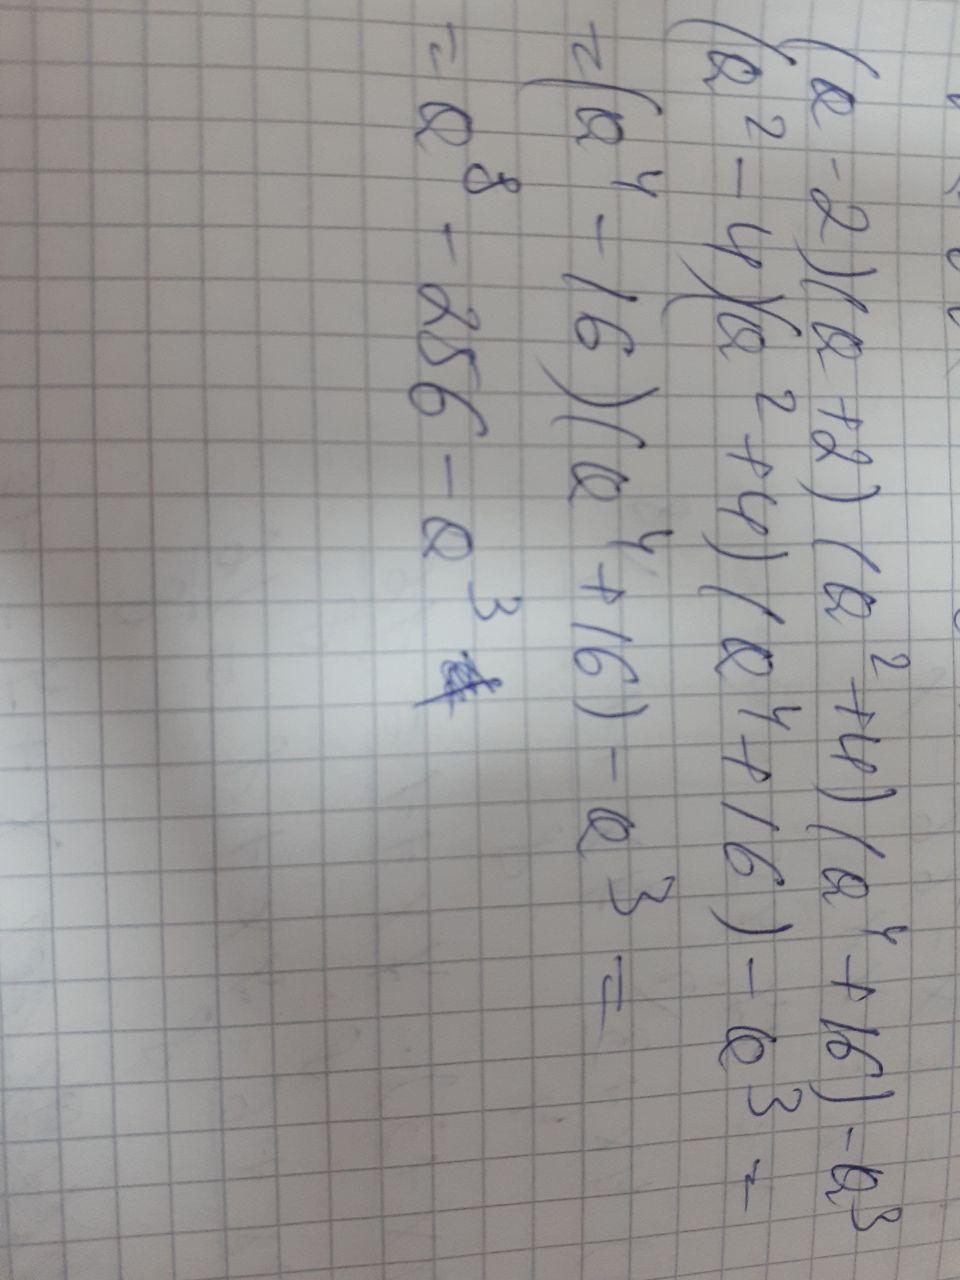 (a-2)(a+2)(a²+4)(a⁴+16)-a³
(a²-4)(a²+4)(a⁴+16)-a³=
=(a⁴-16)(a⁴+16)-a³=
=a⁸-256-a³